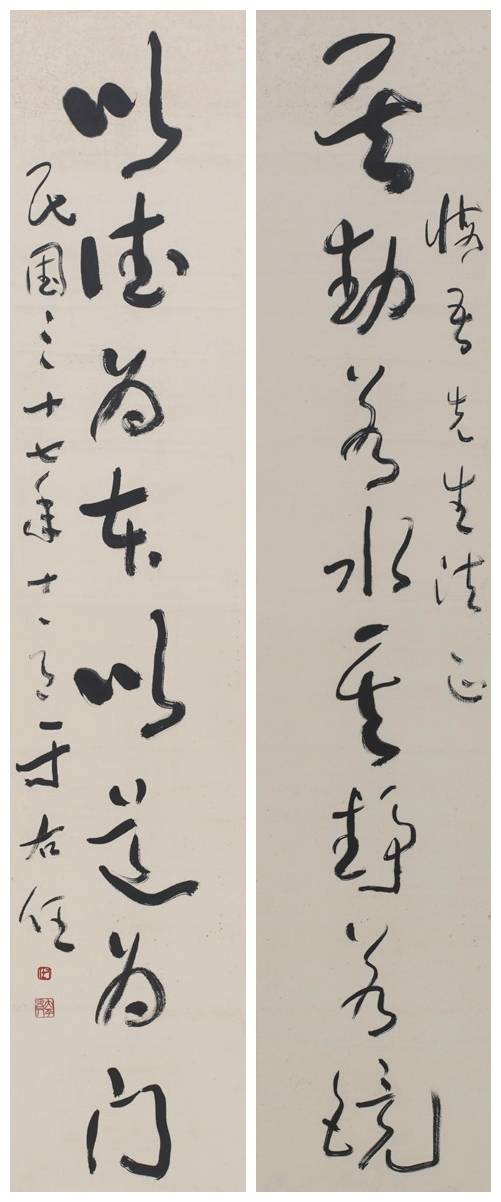 吾先生法正
其動若水其靜若鏡
以德為本以道為門
民国三十七年十月于右任